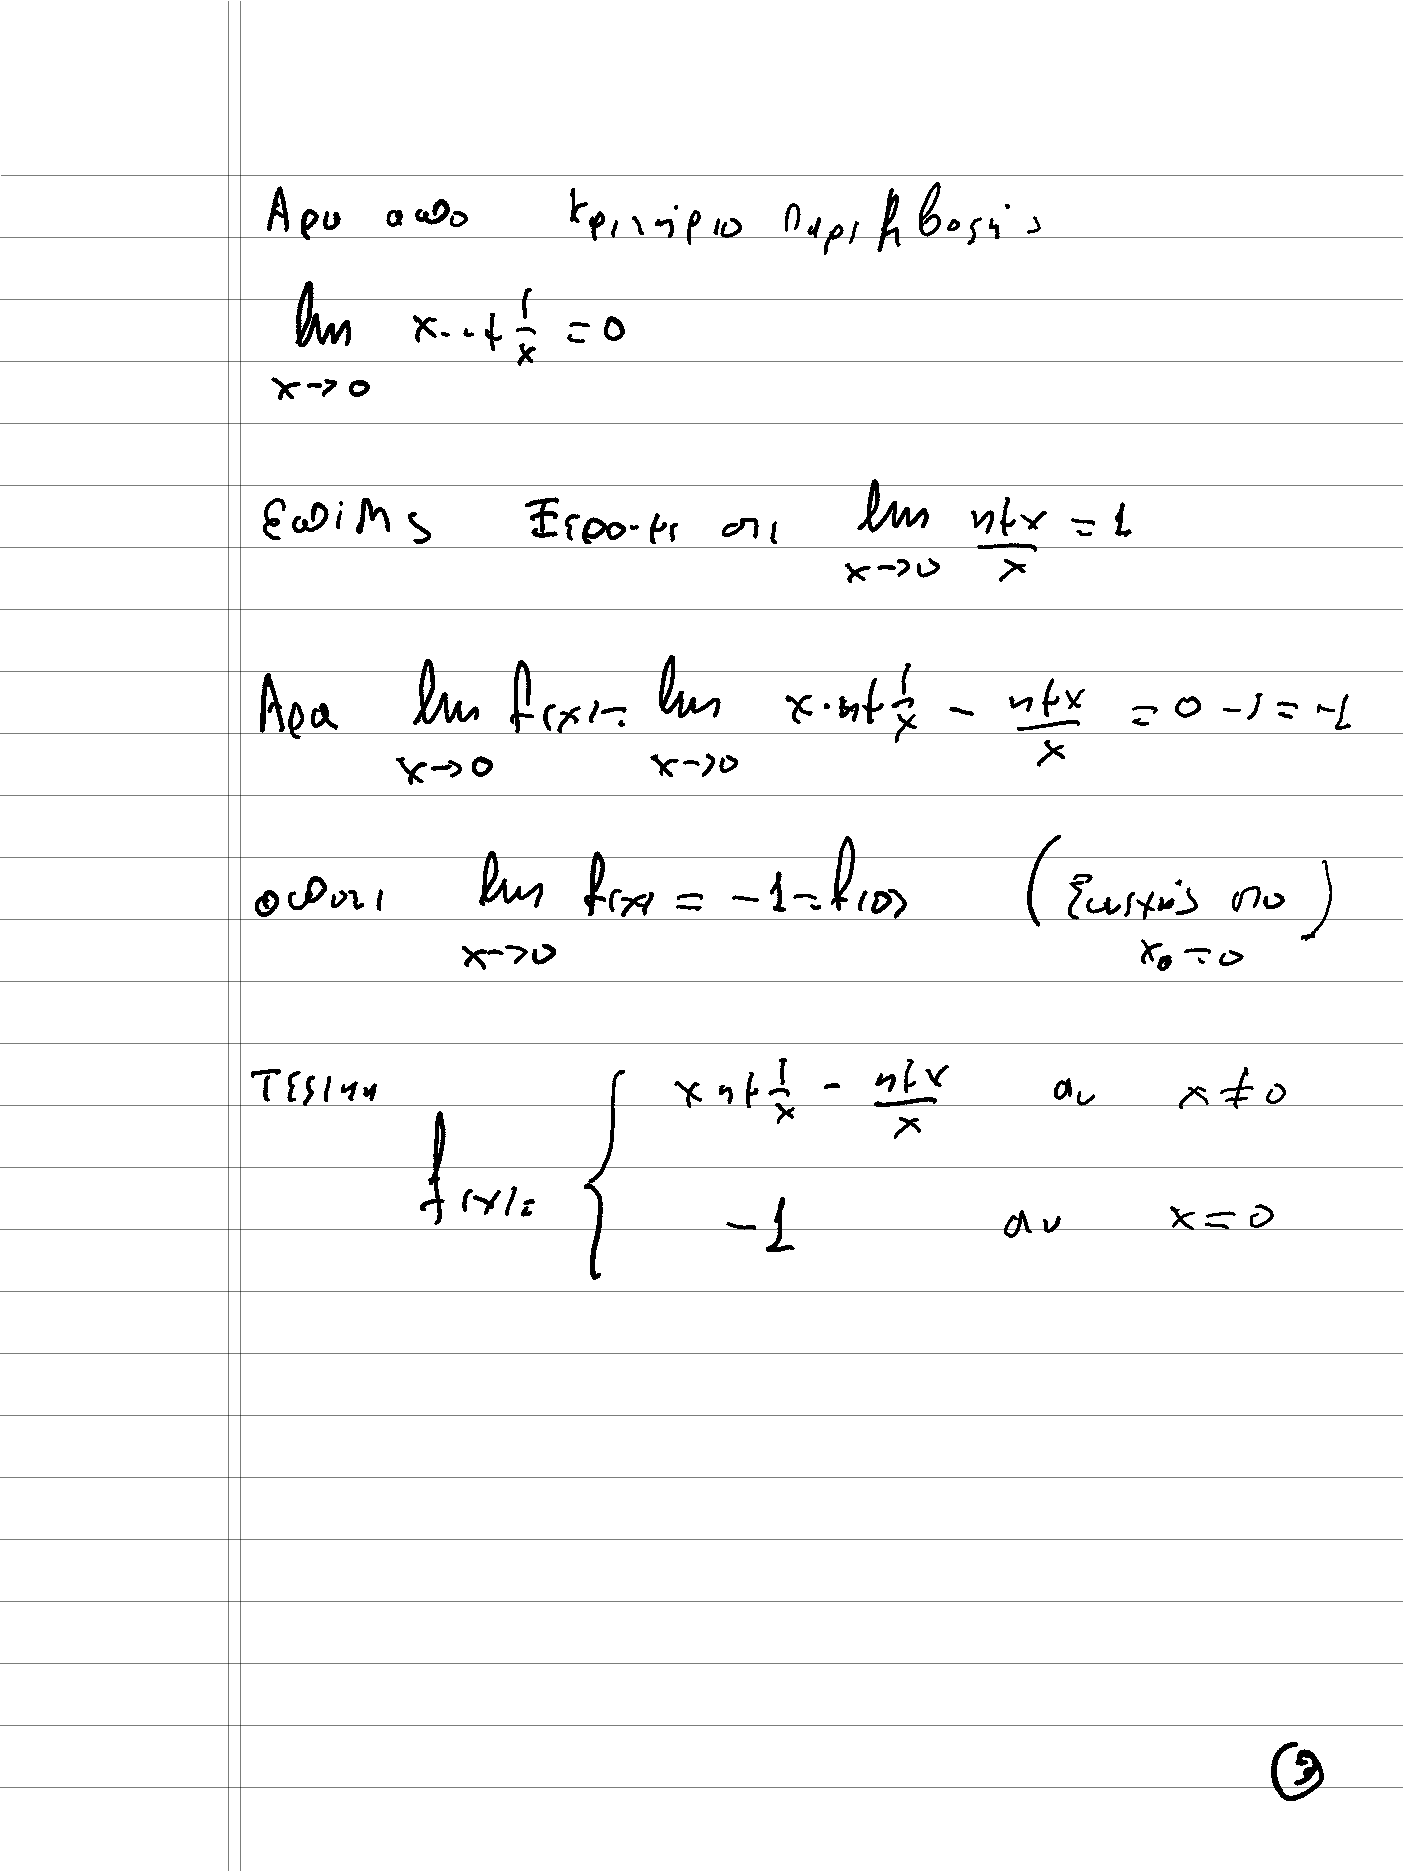 Αρα απο κριτήριο παρεμβολής
lim x·ημ 1/x = 0
x→0
Επίσης ξερουμε οτι lim ημx/x = 1
x→0
Αρα lim f(x) = lim x·ημ 1/x - ημx/x = 0 - 1 = -1
x→0 x→0
οποτε lim f(x) = -1 = f(0) (Συνεχής στο
x→0 x₀ = 0)
Τελικα
f(x) = { x ημ 1/x - ημx/x αν x ≠ 0
-1 αν x = 0
3